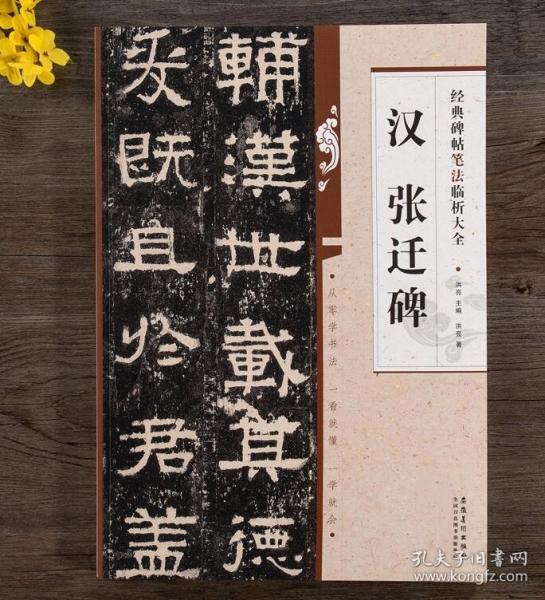 经典碑帖笔法临析大全
汉 张迁碑
洪亮 主编 洪亮 著
輔漢世載其德
爰既且於君盖
·从零学书法 一看就懂 一学就会·
安徽美术出版社
全国百佳图书出版单位
孔夫子旧书网
www.kongfz.com